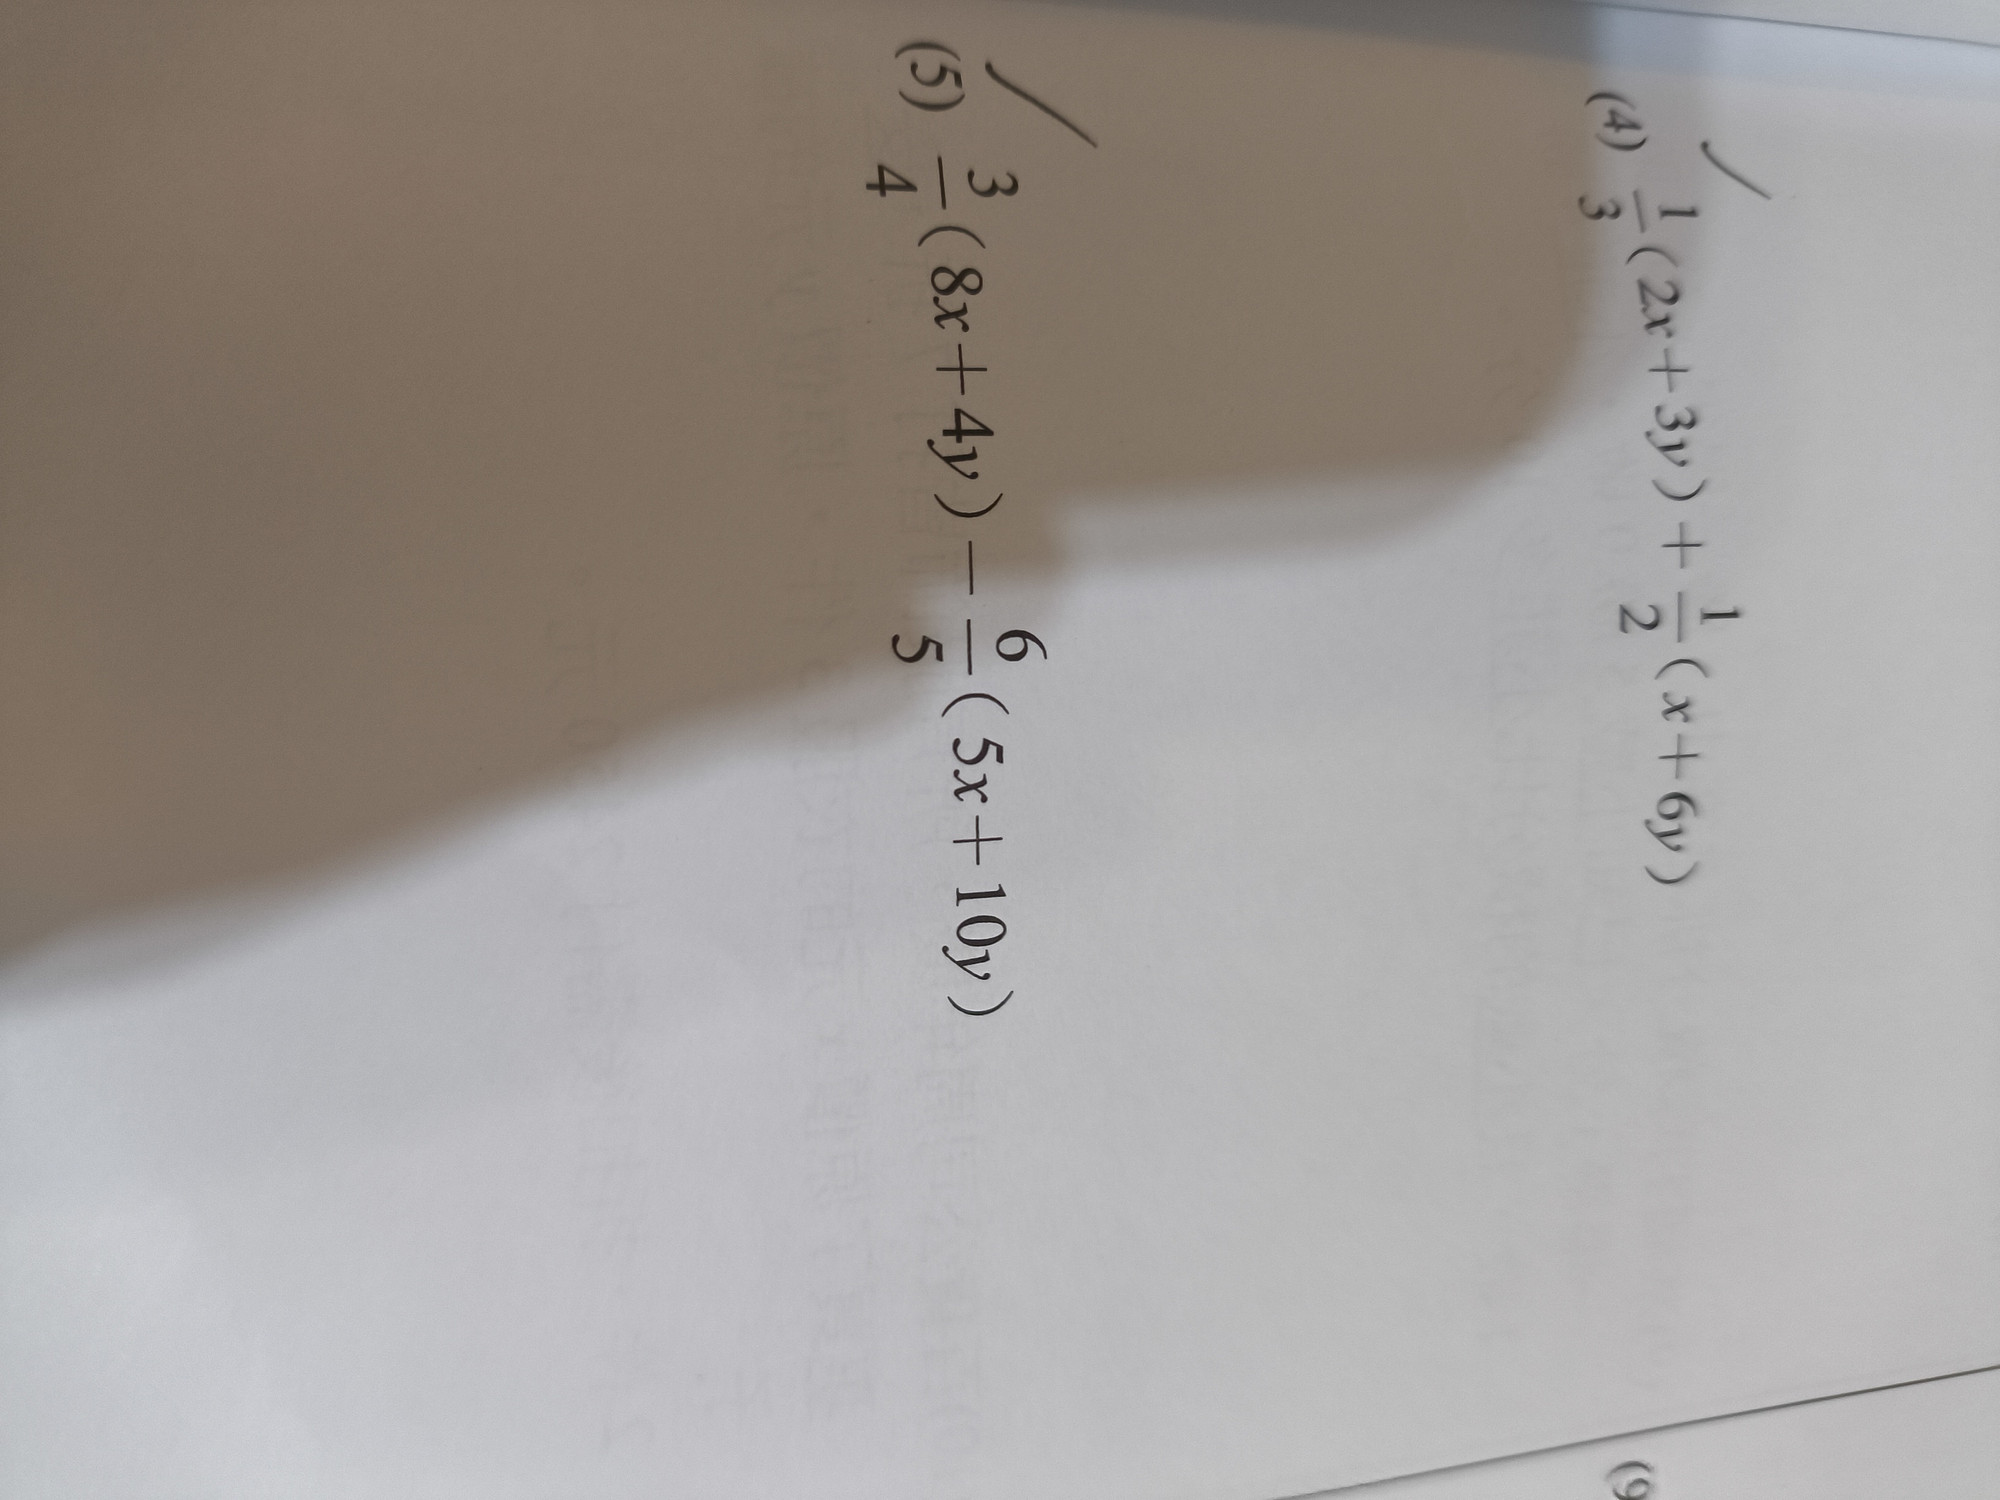 (4) \frac{1}{3}(2x+3y)+\frac{1}{2}(x+6y)
(5) \frac{3}{4}(8x+4y)-\frac{6}{5}(5x+10y)